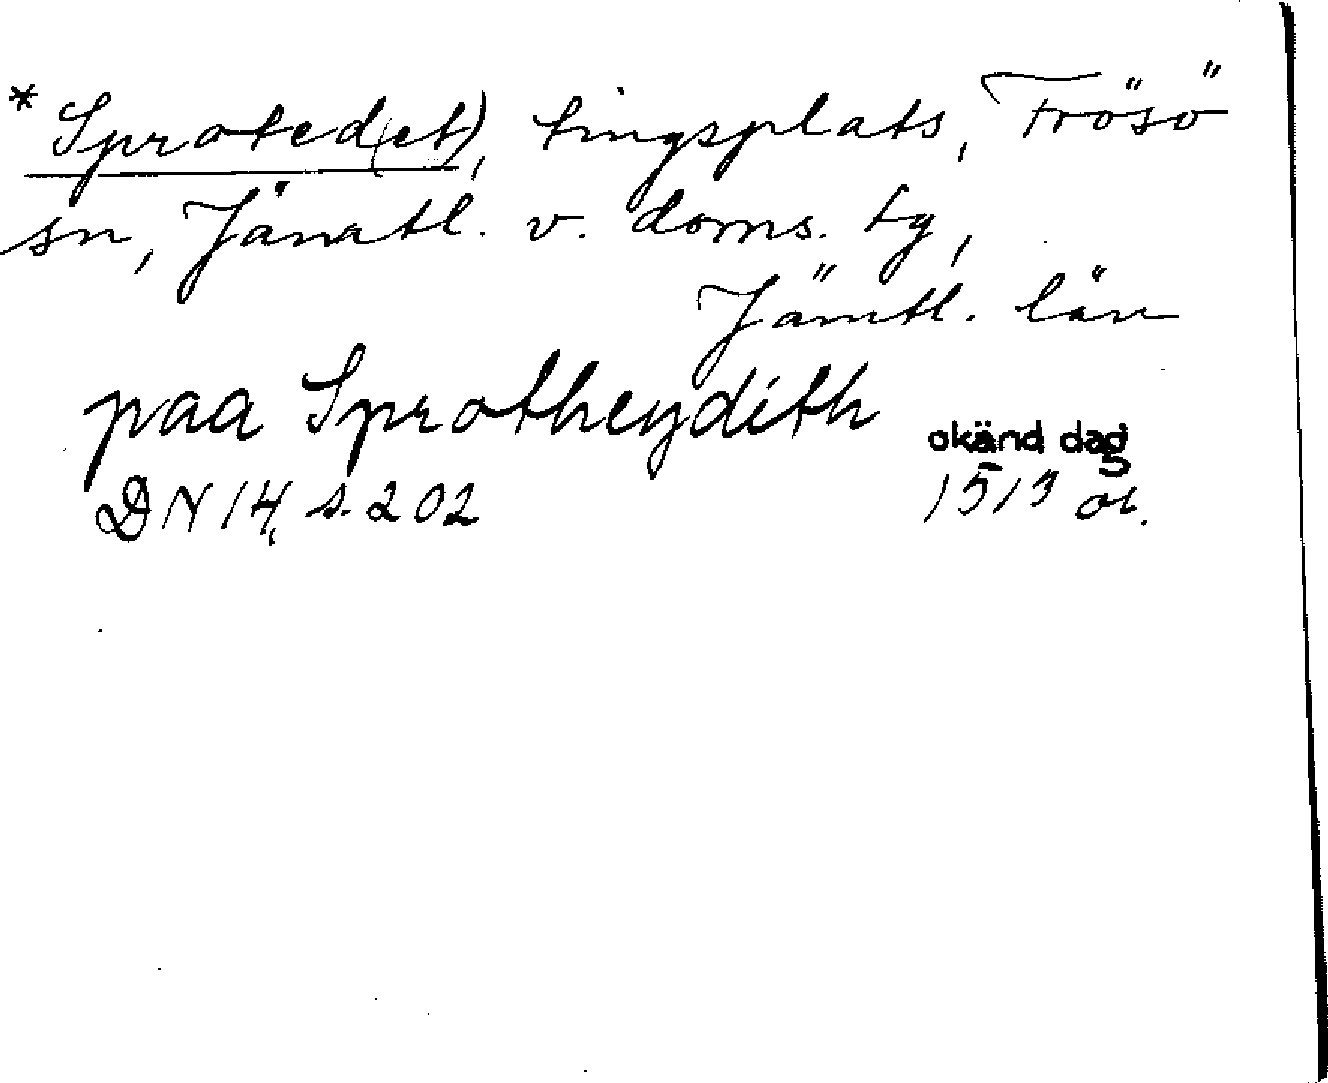 * Sproted(et), tingsplats, Frösö
sn, Jämtl. v. doms. tg,
Jämtl. län
paa Sprotheydith
okänd dag
DN 14, s. 202 1513 or.